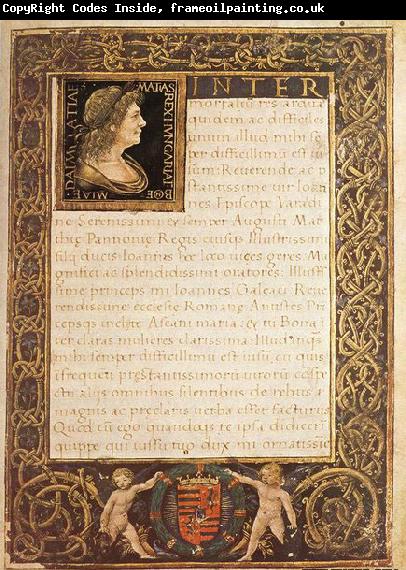 CopyRight Codes Inside, frameoilpainting.co.uk
MATIAS REX HVNGARIAE
DALMATIAE
INTER
mortales res arduas
quidem ac difficiles
unum illud mihi sem
per difficillimum est
sum: Reverende ac p
stantissime vir Ioan
nes Episcope Varadi
ne Serenissimi et semper Augusti Mat
thie Pannonie Regis eiusq Illustrissimi
filij ducis Ioannis hoc loco vices geres Ma
gnifici ac splendidissimi oratores: Illust
sime princeps mi Ioannis Galeaz Reve
rendissime ecclesie Romane Antistes Pri
cepsq inclite Ascani maria: et tu Bona
ter claras mulieres clarissima Illud inquam
mihi semper difficillimum est visum cu quis
i frequeti prestantissimorum virorum
omnibus silentibus de rebus
magnis ac preclaris verba esset facturus
Quod cu ego quandoq re ipsa didicerim
quippe qui iussu tuo dux mi ornatissi